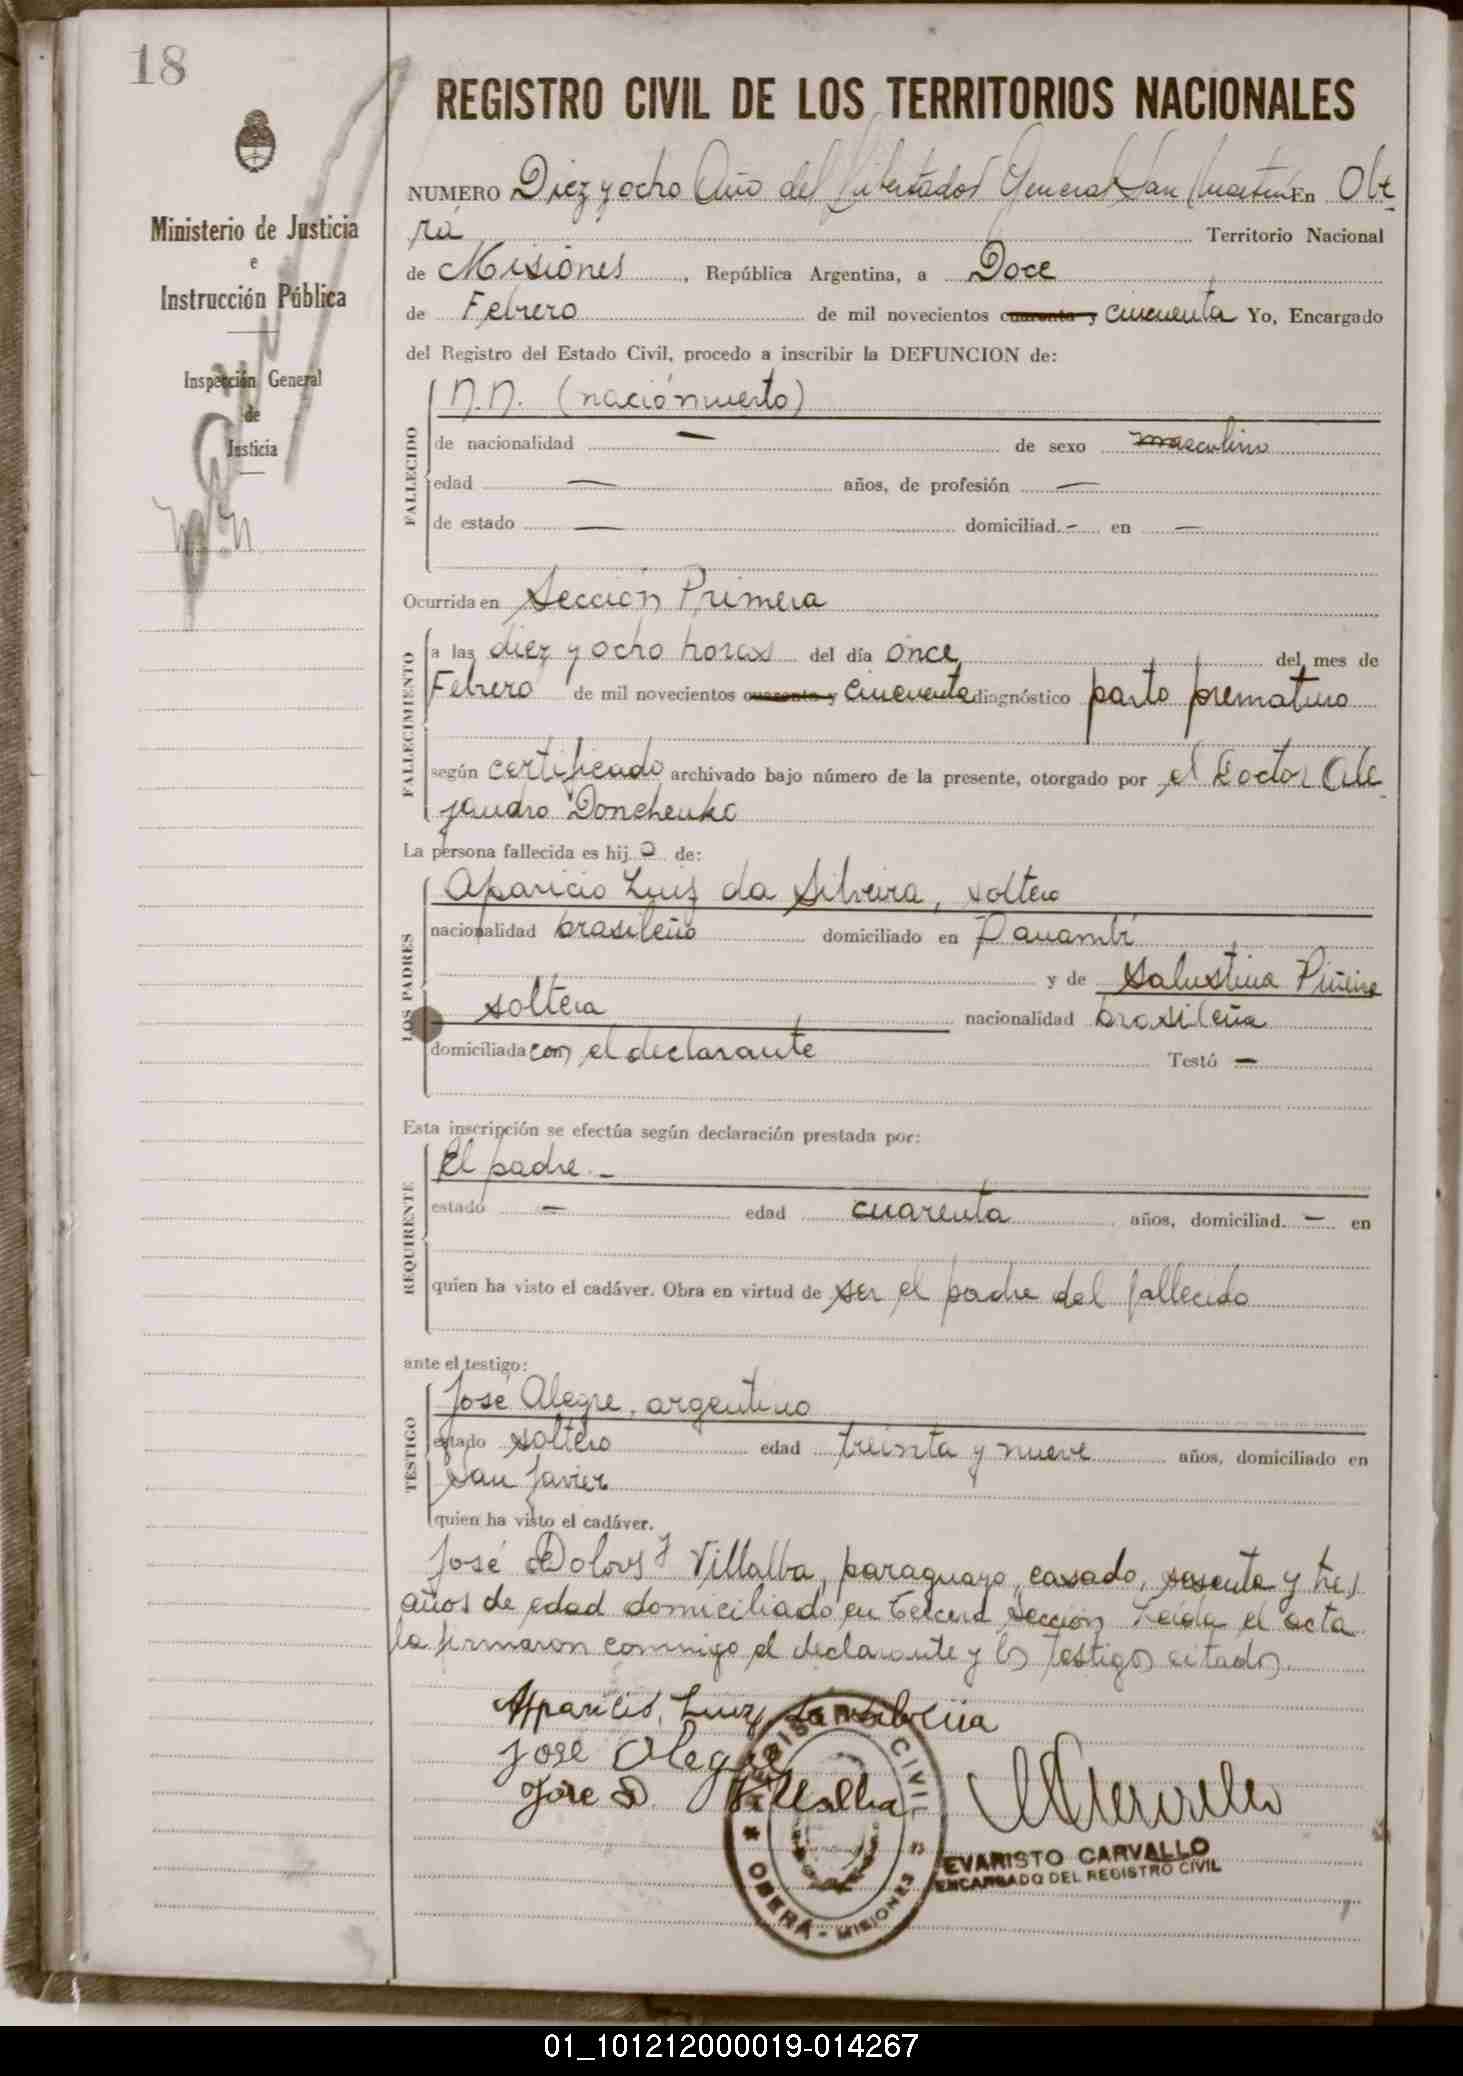 18
REGISTRO CIVIL DE LOS TERRITORIOS NACIONALES
Ministerio de Justicia
e
Instrucción Pública
Inspección General
de
Justicia
N.N.
NUMERO Diez y ocho Año del Libertador General San Martín En Obe-
rá Territorio Nacional
de Misiones, República Argentina, a Doce
de Febrero de mil novecientos cuarenta y cincuenta Yo, Encargado
del Registro del Estado Civil, procedo a inscribir la DEFUNCION de:
FALLECIDO
N.N. (nació muerto)
de nacionalidad — de sexo masculino
edad — años, de profesión —
de estado — domiciliad - en —
Ocurrida en Sección Primera
FALLECIMIENTO
a las diez y ocho horas del día once del mes de
Febrero de mil novecientos cuarenta y cincuenta diagnóstico parto prematuro
según certificado archivado bajo número de la presente, otorgado por el Doctor Ale-
jandro Donchenko
La persona fallecida es hijo de:
LOS PADRES
Aparicio Luiz da Silveira, soltero
nacionalidad brasileño domiciliado en Panambí
y de Salustina Piñeiro
soltera nacionalidad brasileña
domiciliada con el declarante Testó —
Esta inscripción se efectúa según declaración prestada por:
REQUIRENTE
El padre.-
estado — edad cuarenta años, domiciliad - en
quien ha visto el cadáver. Obra en virtud de ser el padre del fallecido
ante el testigo:
TESTIGO
José Alegre, argentino
estado soltero edad treinta y nueve años, domiciliado en
San Javier
quien ha visto el cadáver.
José Villalba, paraguayo, casado, sesenta y tres
años de edad domiciliado en Tercera Sección Leída el acta
la firmaron conmigo el declarante y los testigos citados.
Apparicio Luiz da Silveira
José Alegre
José D. Villalba
REGISTRO CIVIL
OBERÁ - MISIONES
EVARISTO CARVALLO
ENCARGADO DEL REGISTRO CIVIL
01_101212000019-014267